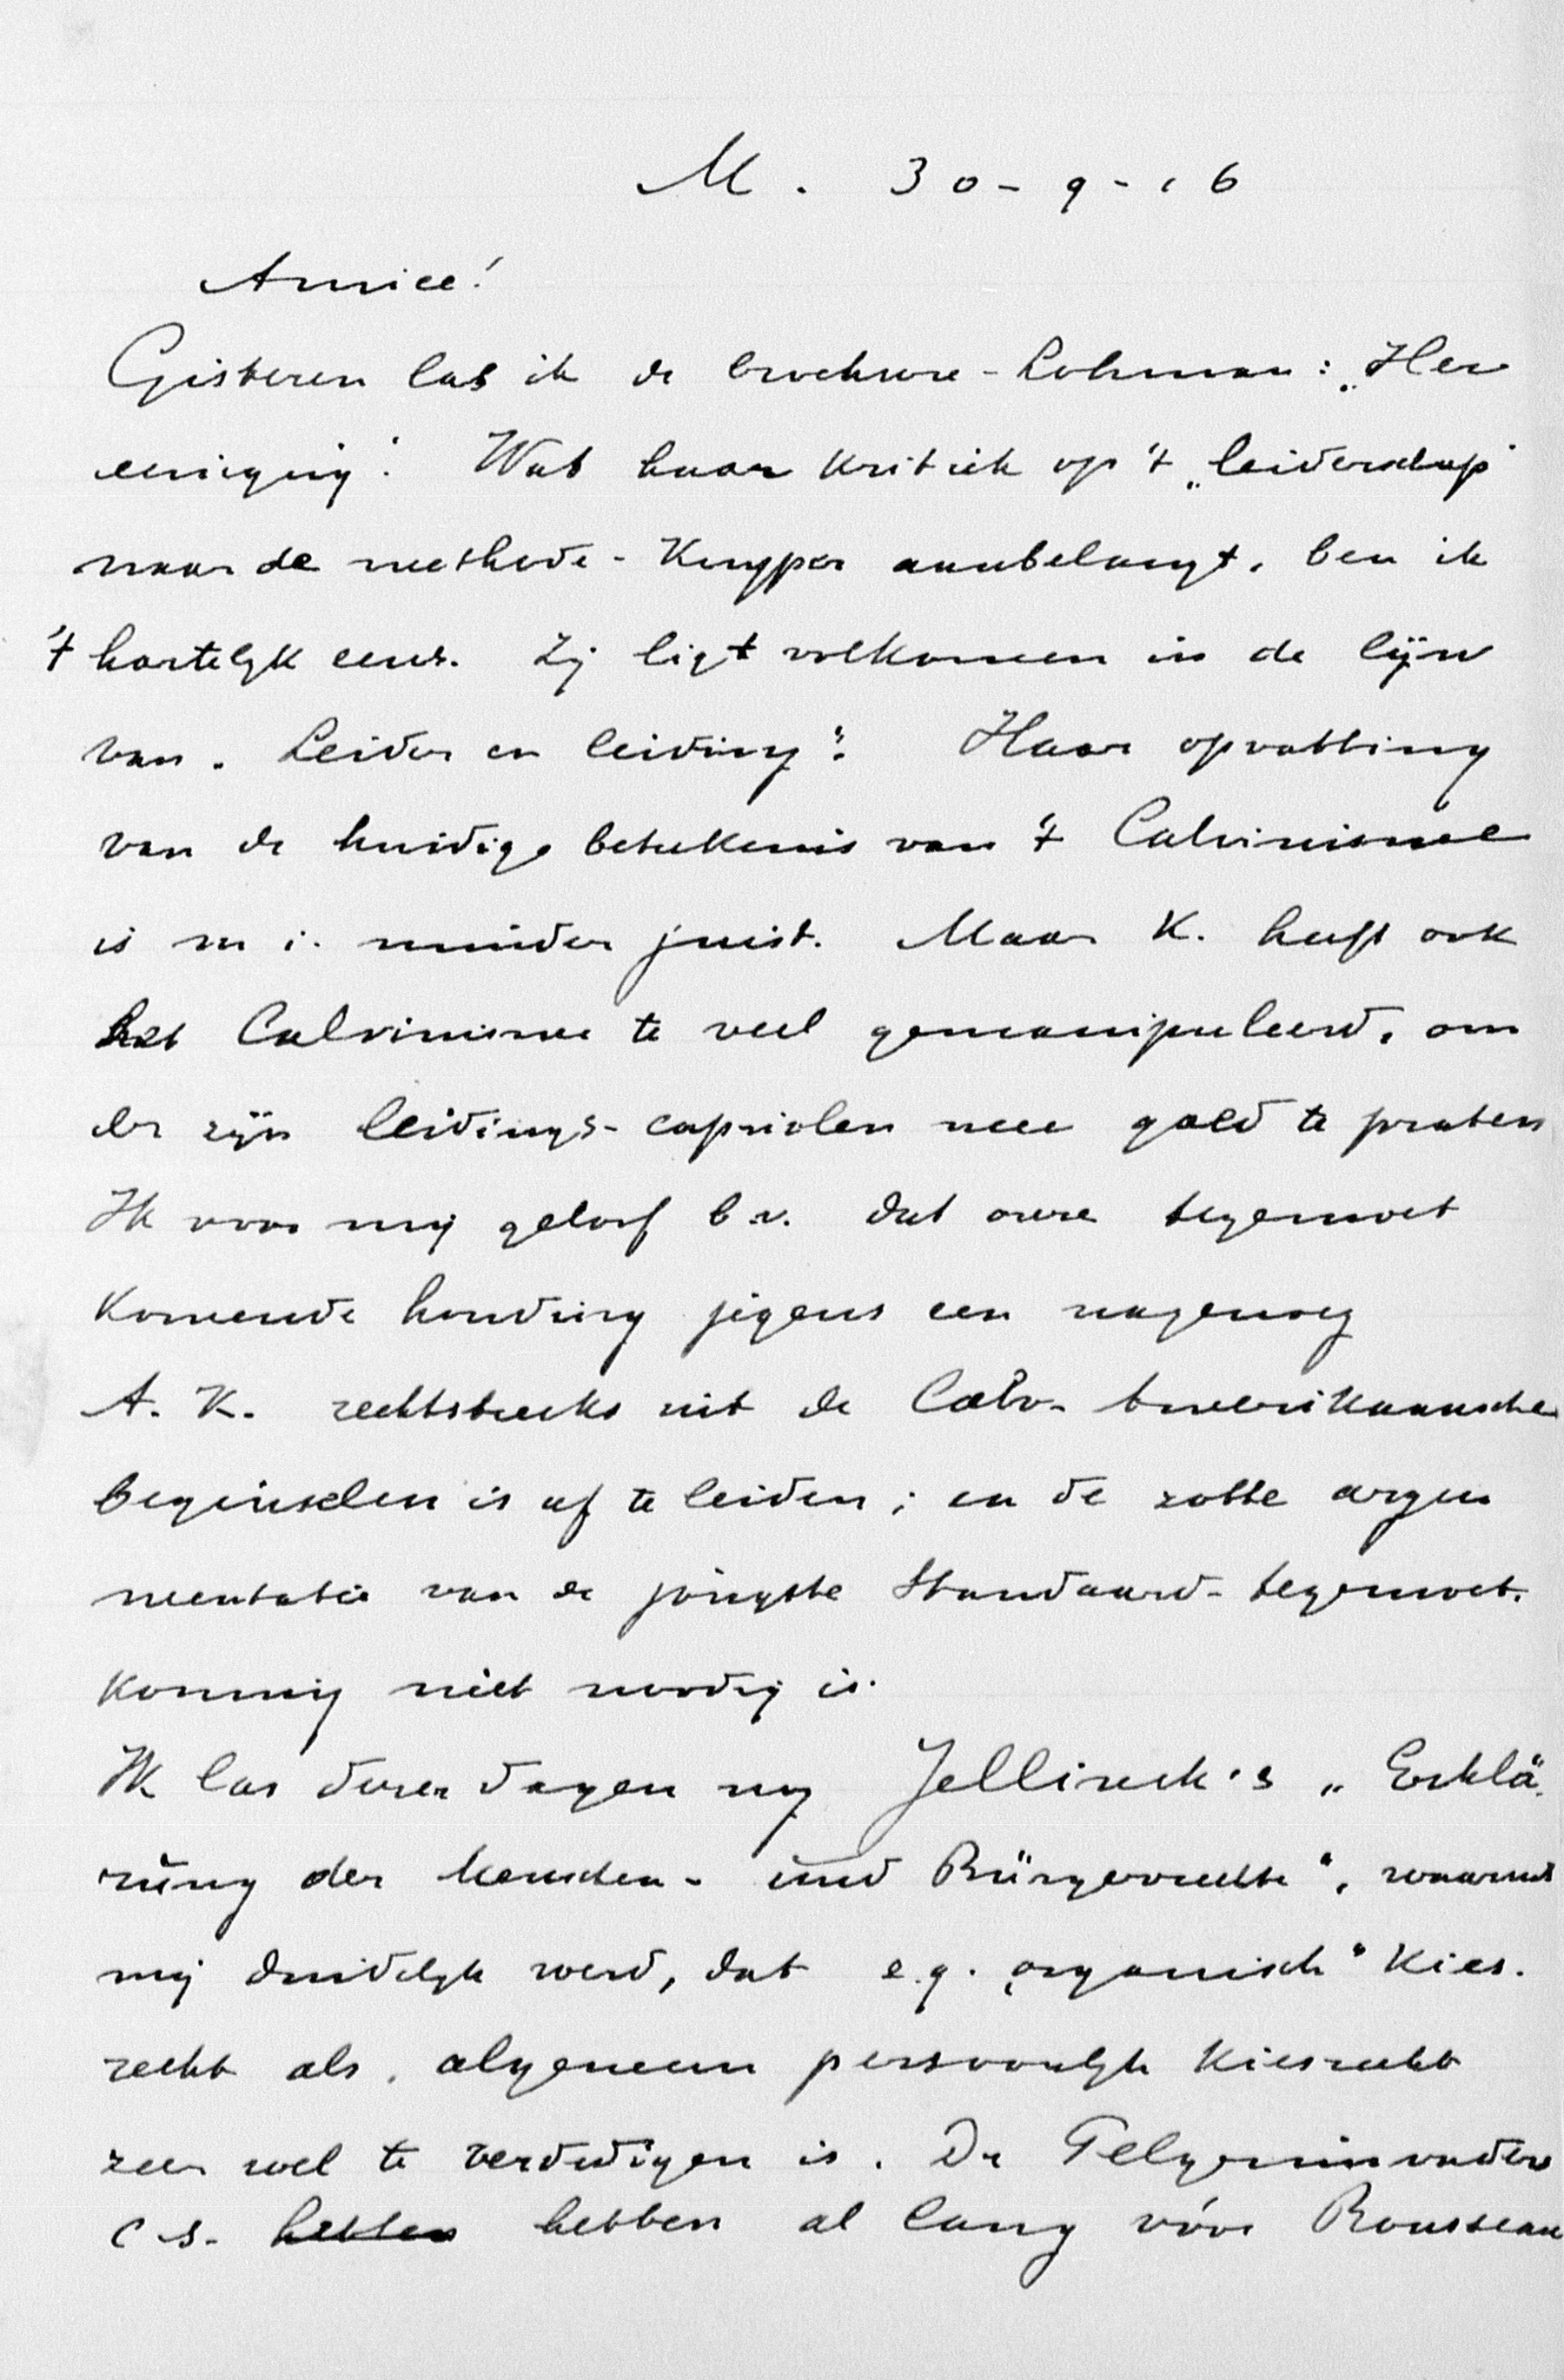 M. 30-9-16
Amice!
Gisteren las ik de brochure-Lohman: „Her
eeniging". Wat haar kritiek op 't „leiderschap"
naar de methode-Kuyper aanbelangt, ben ik
't hartelyk eens. Zij ligt volkomen in de lijn
van „Leider en leiding". Haar opvatting
van de huidige betekenis van 't Calvinisme
is m i. minder juist. Maar K. heeft ook
het Calvinisme te veel gemanipuleerd, om
er zijn leidings-capriolen mee goed te praten
Ik voor mij geloof b.v. dat onze tegemoet
komende houding jegens een nagenoeg
A. K. rechtstreeks uit de Calv. Amerikaansche
beginselen is af te leiden; en de zotte argu
mentatie van de jongste Standaard-tegemoet-
koming niet noodig is.
Ik las dezer dagen nog Jellineck's „Erklä-
rung der Menschen- und Bürgerrechte", waaruit
mij duidelyk werd, dat e.g. „organisch" kies-
recht als algemeen persoonlyk kiesrecht
zeer wel te verdedigen is. De Pelgrimvaders
c s. hebben hebben al lang vóór Rousseau